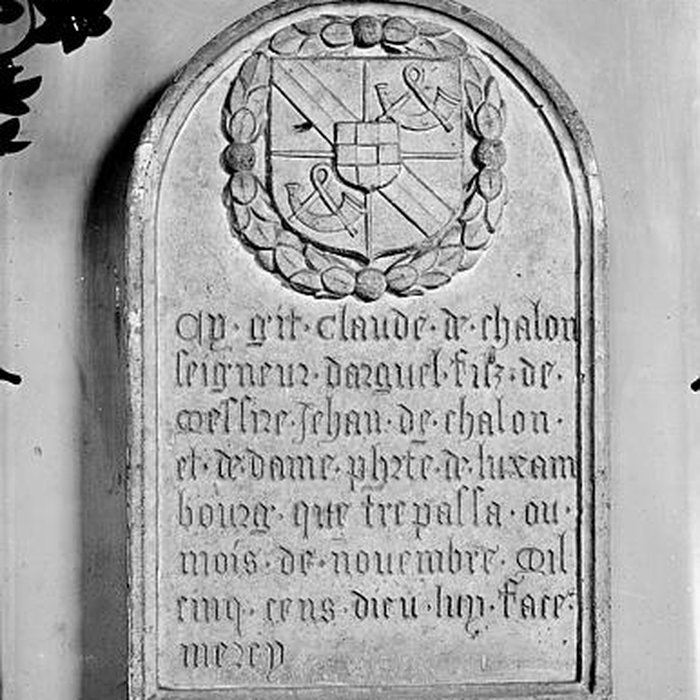 Cy · git · claude · de · chalon
seigneur · darguel · filz · de ·
messire · Jehan · de · chalon ·
et · de dame · phete · de · luxam
bourg · que trepassa · ou ·
mois · de · nouembre · Mil
cinq · cens · dieu · luy · face ·
mercy